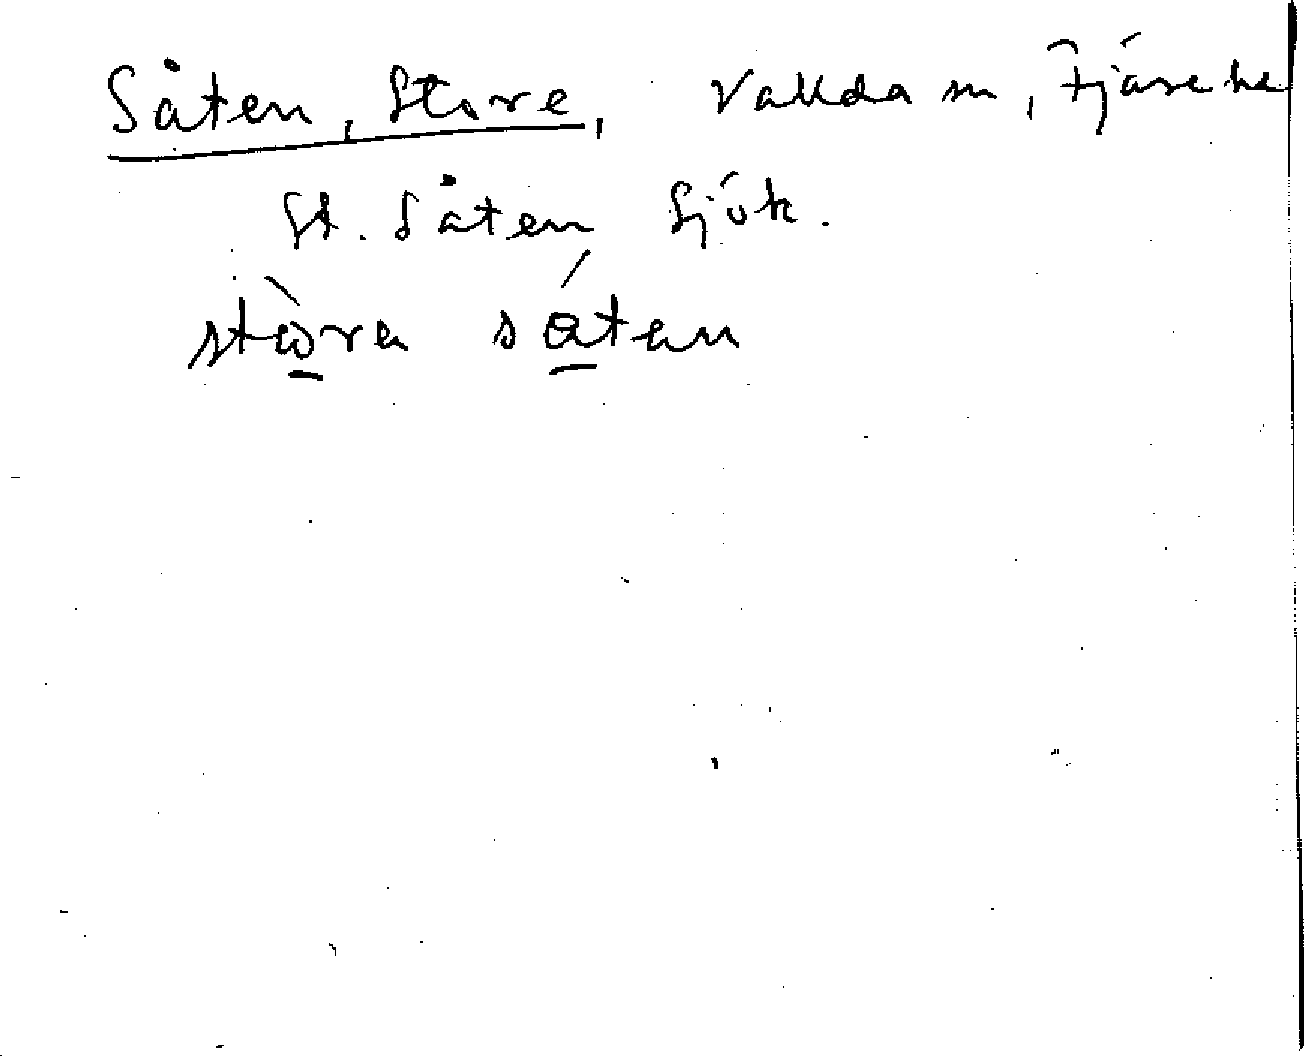 Såten, Store, Vallda sn, Fjäre hd
St. Såten Sjök.
stòra såtan